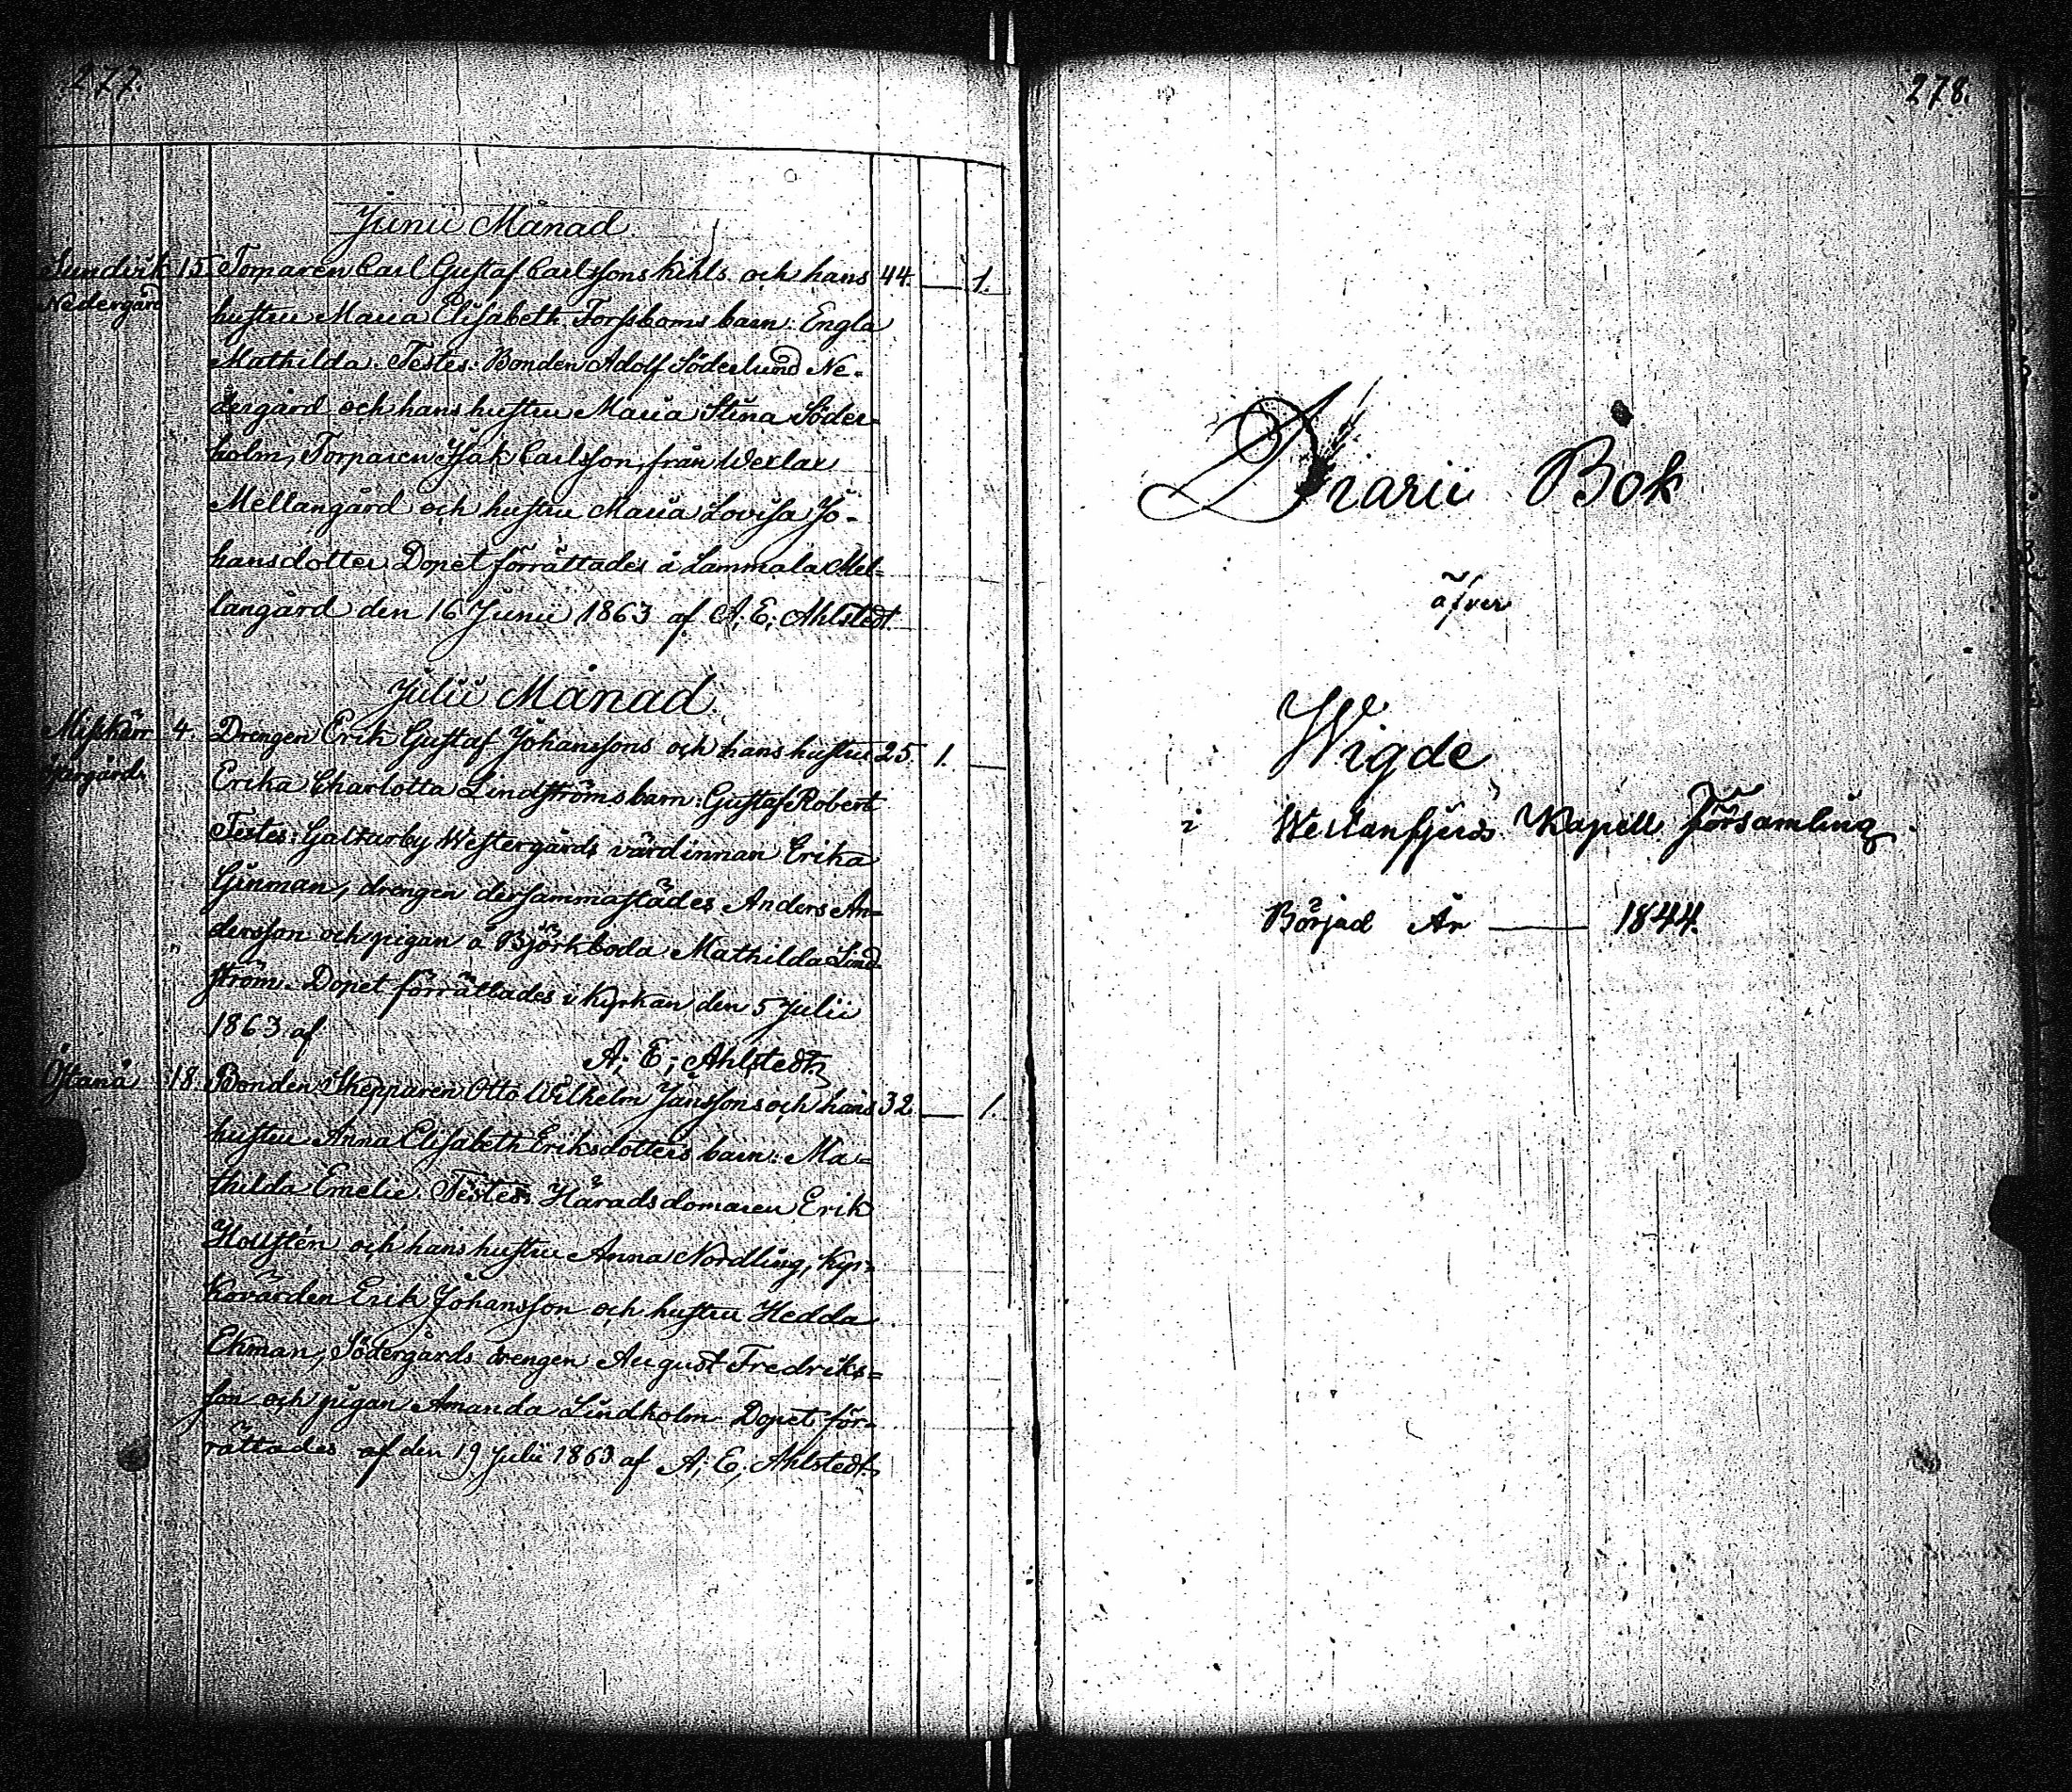 277.
Junii Månad.
Sundvik 15. Torparen Carl Gustaf Carlssons Kihls och hans 44. — 1.
Nedergård hustru Maria Elisabeth Forssboms barn: Engla
Mathilda. Testes: Bonden Adolf Söderlund Ne-
dergård och hans hustru Maria Stina Söder-
holm, Torparen Isak Carlsson från Wexlax
Mellangård och hustru Maria Lovisa Jo-
hansdotter Dopet förrättades å Lammala Mel-
langård den 16 Junii 1863 af A; E; Ahlstedt.
Julii Månad.
Misskärr 4. Drengen Erik Gustaf Johanssons och hans hustru 25. 1. —
Erika Charlotta Lindströms barn: Gustaf Robert
Testes: Galtarby Westergårds värdinnan Erika
Ginman, drengen dersammastädes Anders An-
dersson och pigan å Björkboda Mathilda Lind-
ström. Dopet förrättades i Kyrkan den 5 Julii
1863 af
A; E; Ahlstedt
Östanå 18. Bonden Skepparen Otto Wilhelm Janssons och hans 32. — 1.
hustru Anna Elisabeth Eriksdotters barn: Ma-
thilda Emelie. Testes: Häradsdomaren Erik
och hans hustru Anna Nordling, Kyr-
kovärden Erik Johansson och hustru Hedda
Ekman, Södergårds drengen August Fredriks-
son och pigan Amanda Lindholm Dopet för-
rättades af den 19 Julii 1863 af A; E; Ahlstedt
278.
Diarii Bok
öfver
Wigde
i Westanfjerds Kapell Församling
Börjad År — 1844.